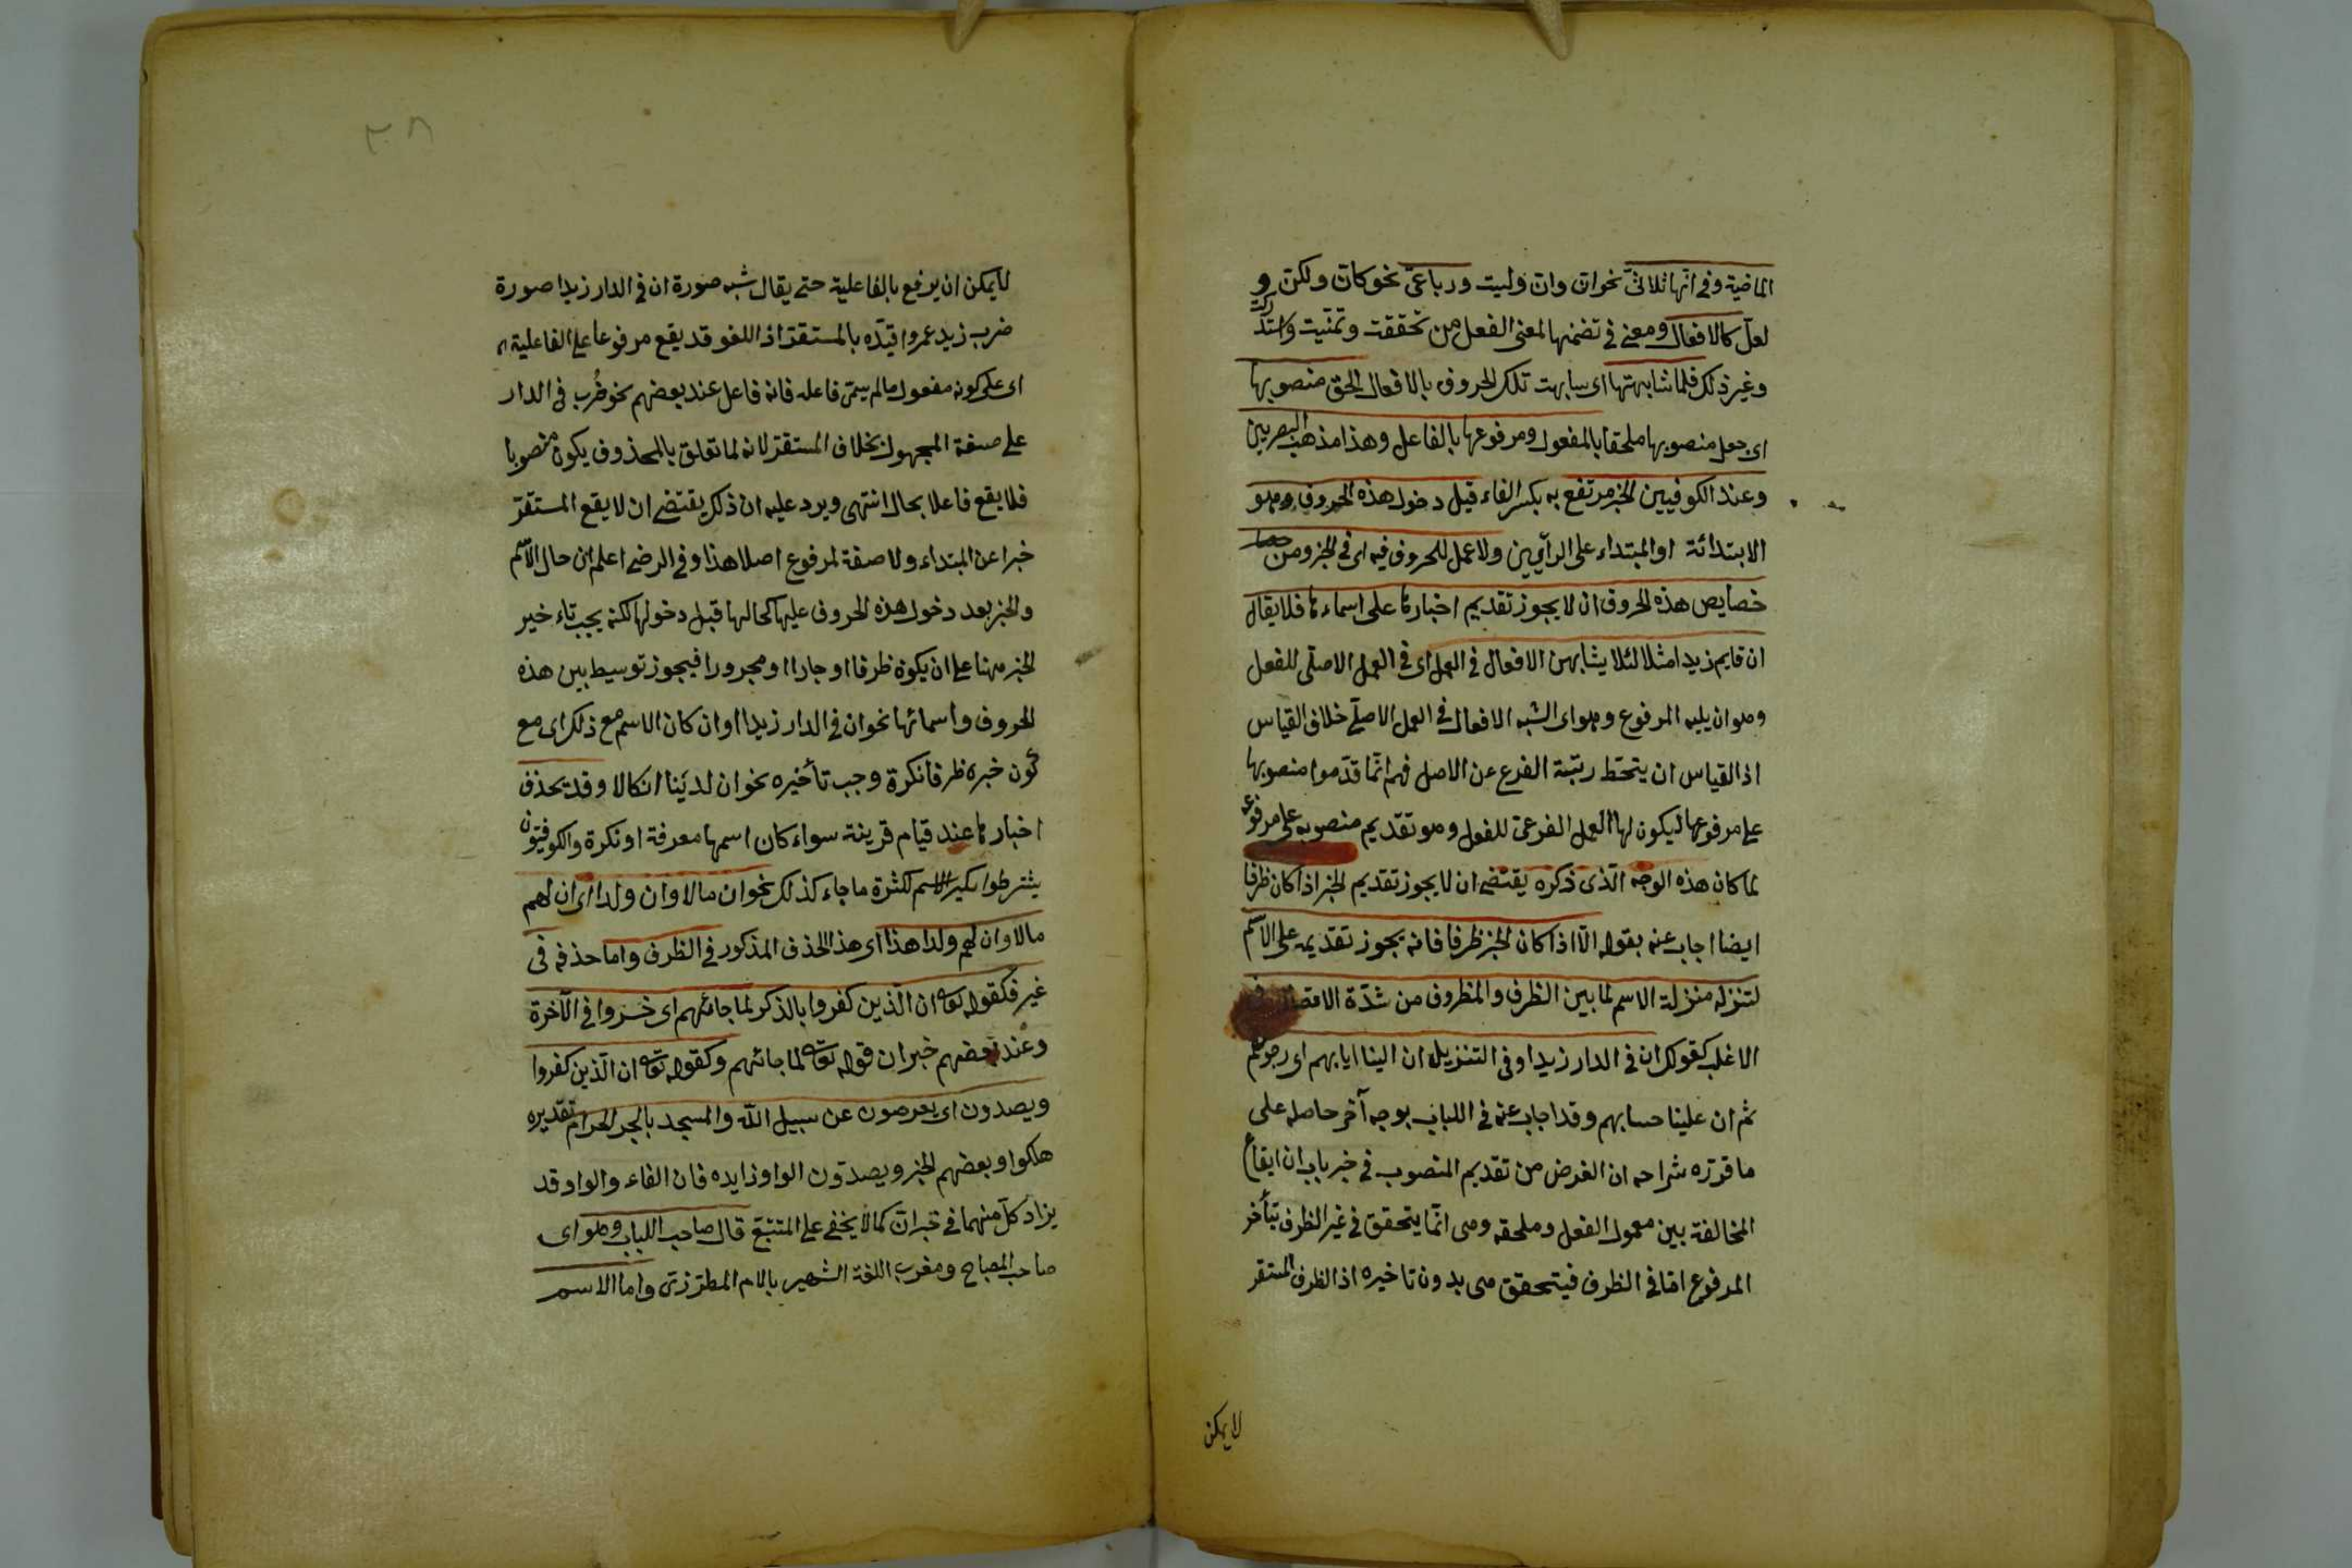 الماضية وفى انها ثلاثىّ نحو انّ وانّ وليت ورباعىّ نحو كانّ ولكنّ و
لعلّ كالافعال ومعنى فى تضمنها لمعنى الفعل من تحققت وتمنّيت واستدركت
وغير ذلك فلما شابهتها اى شابهت تلك الحروف بالافعال الحق منصوبها
اى جعل منصوبها ملحقا بالمفعول ومرفوعها بالفاعل وهذا مذهب البصريين
وعند الكوفيين الخبر مرتفع به بكسر الفاء قبل دخول هذه الحروف وهو
الابتدائة او المبتداء على الرأيين ولا عمل للحروف فيه اى فى الخبر ومن جملة
خصايص هذه الحروف ان لا يجوز تقديم اخبارها على اسماءها فلا يقال
ان قايم زيدا مثلا لئلا يشابهن الافعال فى العمل اى فى العمل الاصلى للفعل
وهو ان يليه المرفوع وهو اى الشبه الافعال فى العمل الاصلى خلاف القياس
اذ القياس ان ينحطّ رتبة الفرع عن الاصل فهم انّما قدّموا منصوبها
على مرفوعها ليكون لها العمل الفرعى للفعل وهو تقديم منصوبه على مرفوعه
لما كان هذه الوجه الذى ذكره يقتضى ان لا يجوز تقديم الخبر اذا كان ظرفا
ايضا اجاب عنه بقوله الّا اذا كان الخبر ظرفا فانه يجوز تقديمه على الاسم
لتنزله منزلة الاسم لما بين الظرف والمظروف من شدّة الاتصال فى
الاغلب كقولك ان فى الدار زيدا وفى التنزيل ان الينا ايابهم اى رجوعهم
ثم ان علينا حسابهم وقد اجاب عنه فى اللباب بوجه آخر حاصله على
ما قرّره شراحه ان الغرض من تقديم المنصوب فى خبر باب ان ايقاع
المخالفة بين معمول الفعل وملحقه وهى انّما يتحقق فى غير الظرف بتأخر
المرفوع امّا فى الظرف فيتحقق هى بدون تاخيره اذ الظرف المستقر
لا يمكن
٢٨
لا يمكن ان يرفع بالفاعلية حتى يقال شبه صورة ان فى الدار زيدا صورة
ضرب زيد عمروا قيّده بالمستقرّ اذ اللغو قد يقع مرفوعا على الفاعلية
اى على كونه مفعول ما لم يسمّ فاعله فانه فاعل عند بعضهم نحو ضُرب فى الدار
على صيغة المجهول بخلاف المستقرّ لانه لما تعلق بالمحذوف يكون منصوبا
فلا يقع فاعلا بحال انتهى ويرد عليه ان ذلك يقتضى ان لا يقع المستقرّ
خبرا عن المبتداء ولا صفة لمرفوع اصلا هذا وفى الرضى اعلم ان حال الاسم
والخبر بعد دخول هذه الحروف عليها كحالها قبل دخولها لكنه يجب تاء خير
الخبر هنا على ان يكون ظرفا او جارا او مجرورا فيجوز توسيط بين هذه
الحروف واسمائها نحو ان فى الدار زيدا او ان كان الاسم مع ذلك اى مع
كون خبره ظرفا نكرة وجب تأخيره نحو ان لدينا انكالا وقد يحذف
اخبارها عند قيام قرينة سواء كان اسمها معرفة او نكرة والكوفيّون
يشترطوا تنكير الاسم لكثرة ما جاء كذلك نحو ان مالا وان ولدا اى ان لهم
مالا وان لهم ولدا هذا اى هذا الحذف المذكور فى الظرف واما حذفه فى
غير فكقوله تعالى ان الّذين كفروا بالذكر لما جائهم اى خسروا فى الآخرة
وعند بعضهم خبر ان قوله تعالى لما جائهم وكقوله تعالى ان الّذين كفروا
ويصدون اى يعرضون عن سبيل اللّه والمسجد بالجر الحرام تقديره
هلكوا وبعضهم الخبر ويصدّون الواو زايده فان الفاء والواو قد
يزاد كلّ منهما فى خبر انّ كما لا يخفى على المتتبّع قال صاحب اللباب وهو اى
صاحب المصباح ومغرب اللغة الشهير بالامام المطرّزى واما الاسم